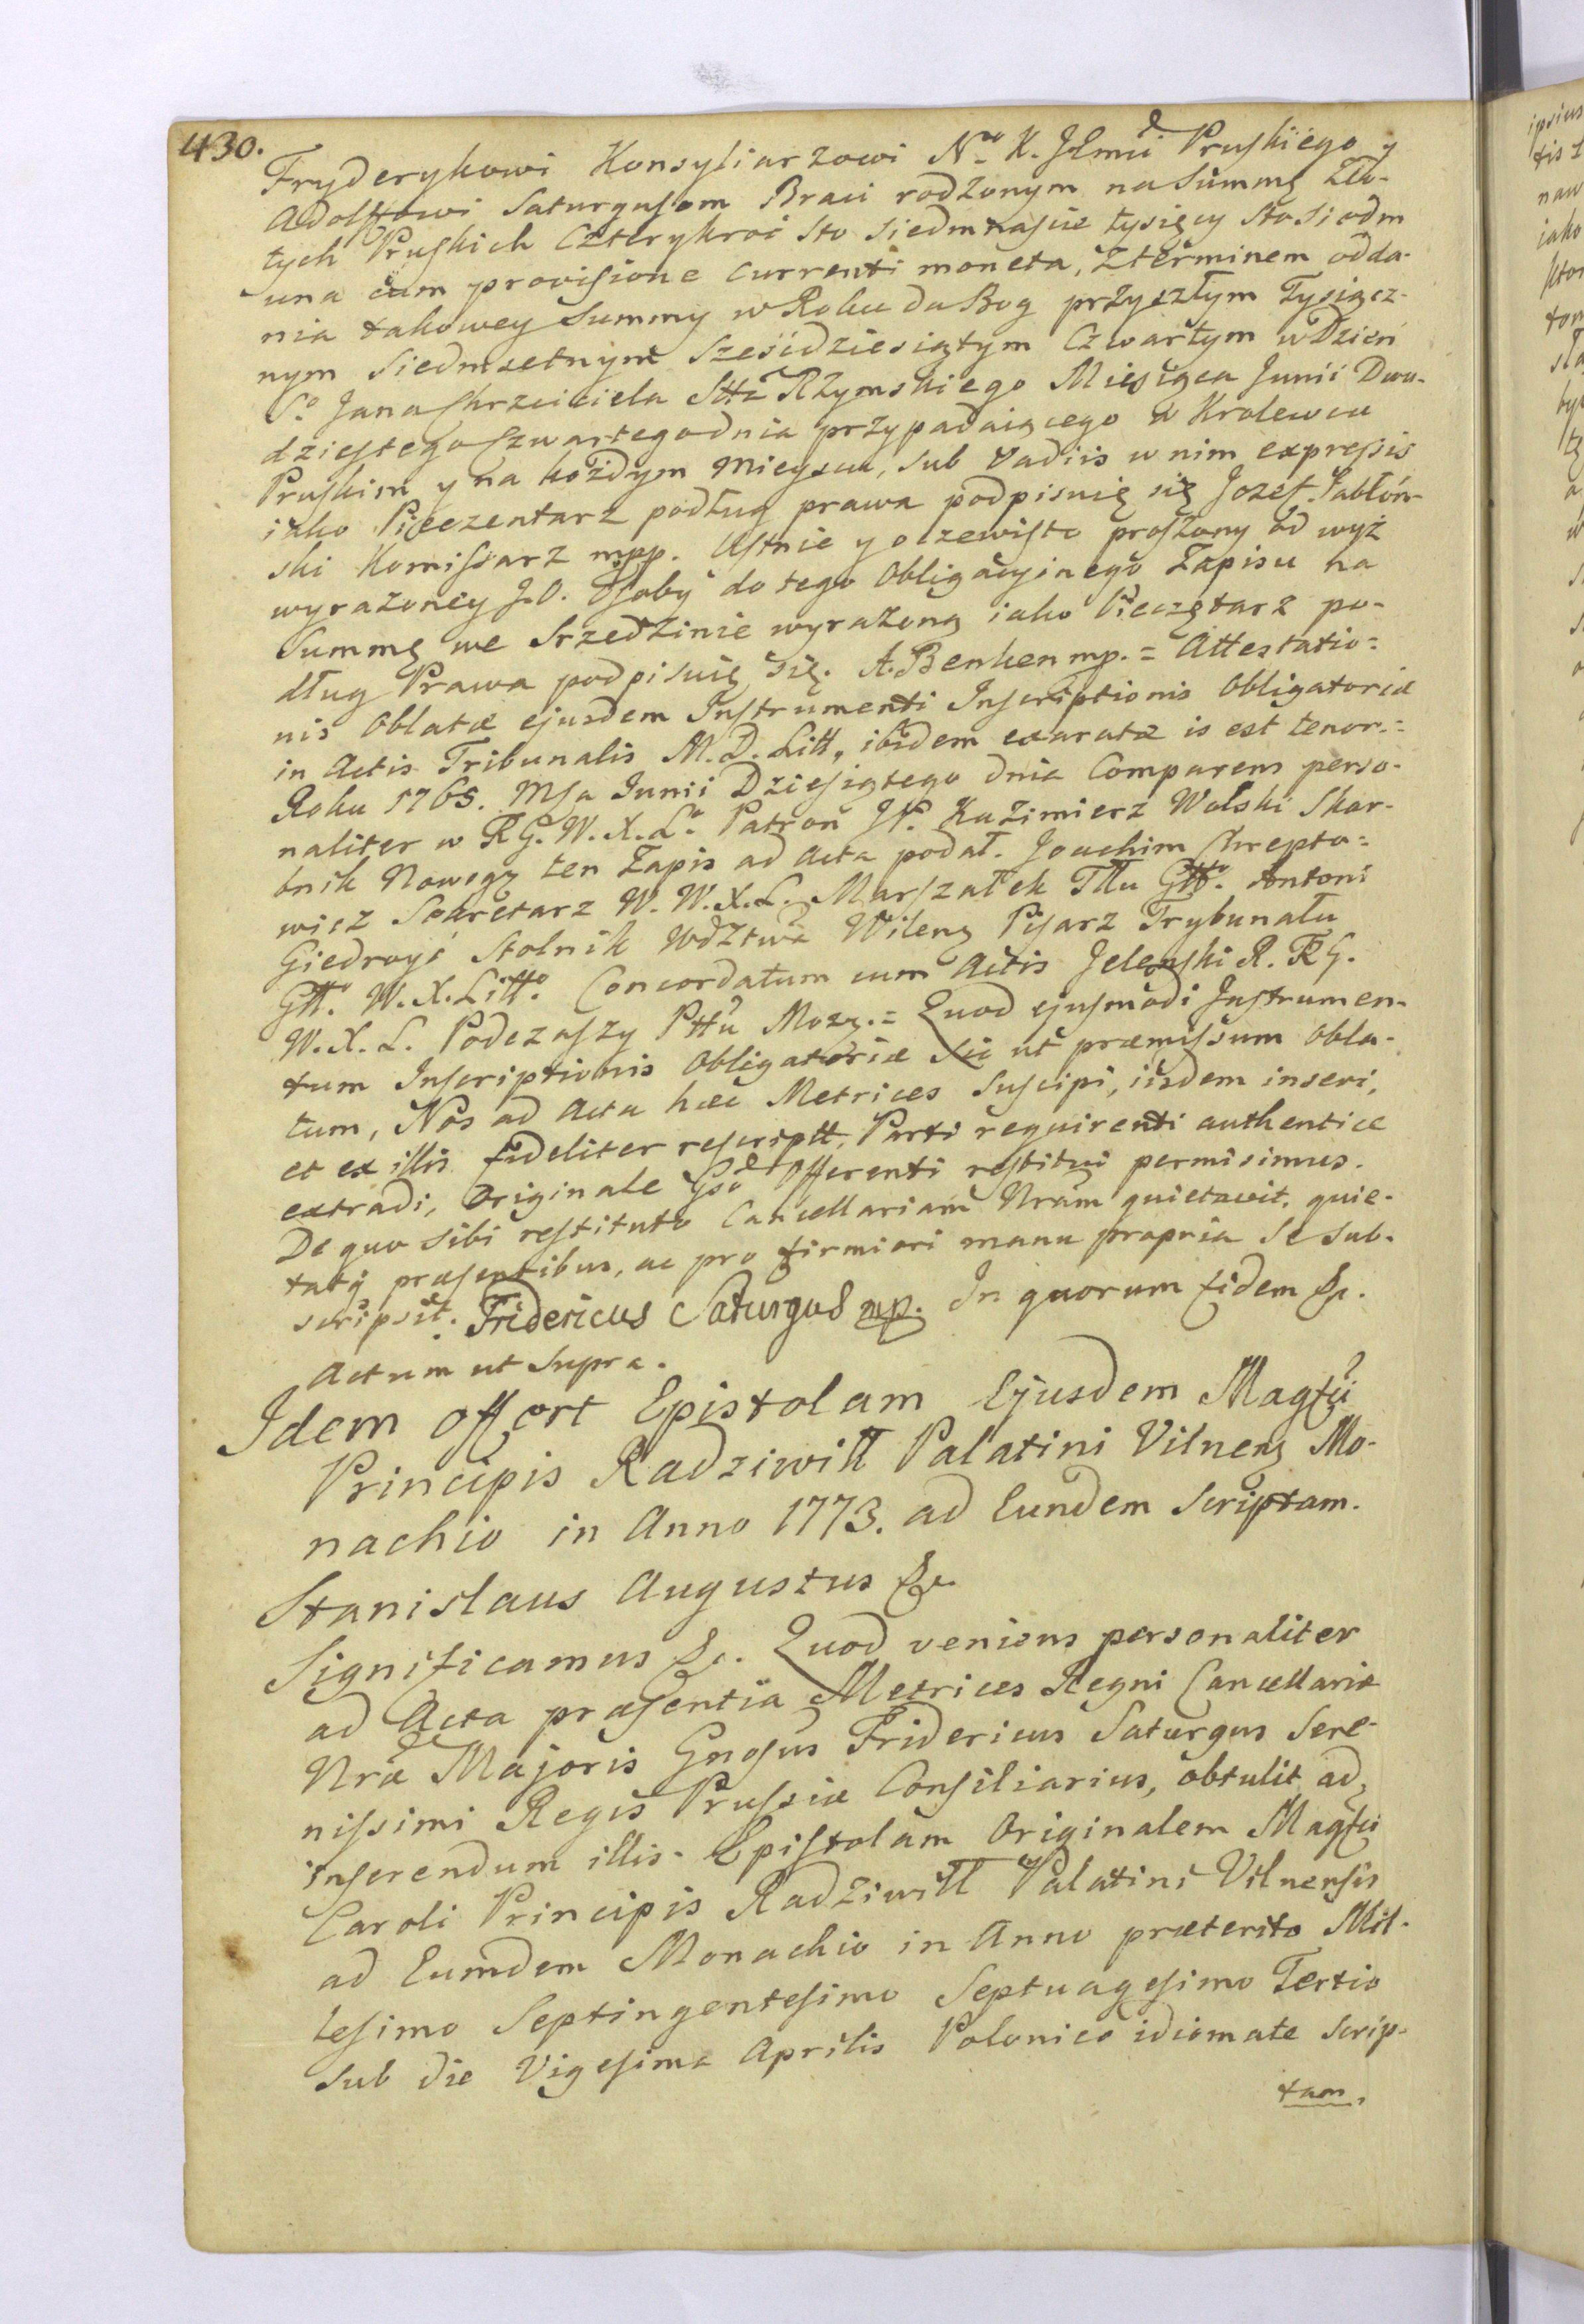 430.
Fryderykowi Konsyliarzowi Nro K. JEmci Pruskiego y
Adolffowi Saturgusom Braci rodzonym na Summę Zło-
tych Pruskich Czterykroć Sto Siedmnaście tysięcy Sto Siedm
una cum provisione currenti moneta, z terminem odda-
nia takowey Summy w Roku da Bog przyszłym Tysiącz-
nym Siedmsetnym Sześćdziesiątym Czwartym w Dzień
So Jana Chrzciciela Stta Rzymskiego Miesiąca Junii Dwu-
dziestego Czwartego dnia przypadaiącego w Krolewcu
Pruskim y na każdym mieyscu, sub vadiis w nim expressis
iako Pieczentarz podług prawa podpisuię się Jozef Jabłoń-
ski Komissarz mpp. Ustnie y oczewisto proszony od wyż
wyrażoney J.O. Osoby do tego Obligacyjnego Zapisu na
Summę we Srzedzinie wyrażoną iako Pieczętarz po-
dług Prawa podpisuię się. A. Benken mp. = Attestatio=
nis Oblatæ ejusdem Instrumenti Inscriptionis Obligatoriæ
in Actis Tribunalis M.D. Litt, ibidem exaratæ is est tenor.=
Roku 1765. Msa Junii Dziesiątego dnia Comparens perso-
naliter w R G. W. X. Lo Patron JP. Kazimierz Wolski Skar-
bnik Nowogz ten Zapis ad Acta podał. Joachim Chrepto=
wicz Sekretarz W. W.X.L. Marszałek Tłłu Gtto. Antoni
Giedroyć Stolnik Wdztwa Wileng Pisarz Trybunału
Gtto. W. X. Litto. Concordatum cum Actis Jelenski R. R G.
W. X. L. Podczaszy Pttu Mozg. = Quod ejusmodi Instrumen-
tum Inscriptionis Obligatoriæ sic ut præmissum obla-
tum, Nos ad Acta hæc Metrices suscipi, iisdem inseri,
et ex illis fideliter rescriptt, Parti requirenti authentice
extradi, Originale Gso Offerenti restitui permisimus.
De quo sibi restituto Cancellariam Nram quietavit, quie-
tatq præsentibus, ac pro firmiori manu propria se sub-
scripsit. Fridericus Saturgus mp. In quorum fidem &c.
Actum ut supra.
Idem offert Epistolam Ejusdem Magfci
Principis Radziwiłł Palatini Vilneng Mo-
nachio in Anno 1773. ad Eundem scriptam.
Stanislaus Augustus &c.
Significamus &c. Quod veniens personaliter
ad Acta præsentia Metrices Regni Cancellariæ
Nræ Majoris Gnosus Fridericus Saturgus Sere-
nissimi Regis Prussiæ Consiliarius, obtulit ad
inserendum illis. Epistolam Originalem Magfci
Caroli Principis Radziwiłł Palatini Vilnensis
ad Eumdem Monachio in Anno præterito Mil-
lesimo Septingentesimo Septuagesimo Tertio
sub die Vigesima Aprilis Polonico idiomate scrip-
tam,
ipsius
naw
iako